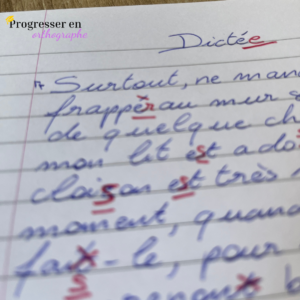 Progresser en
orthographe
Dictée
Surtout, ne man
frapper au mur
de quelque ch
mon lit est ado
cloison est très
moment, quand
faix-le, pour
s